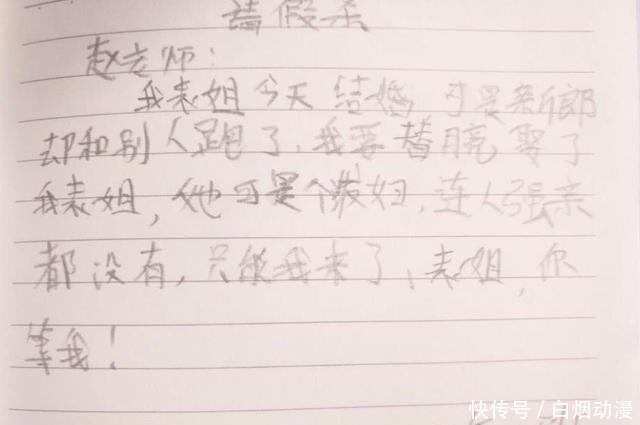 請假条
赵老师：
我表姐今天结婚 可是新郎
却和别人跑了，我要替 娶了
我表姐，她可是个泼妇，连人强亲
都没有，只能我来了，表姐，你
等我！
快传号/白烟动漫